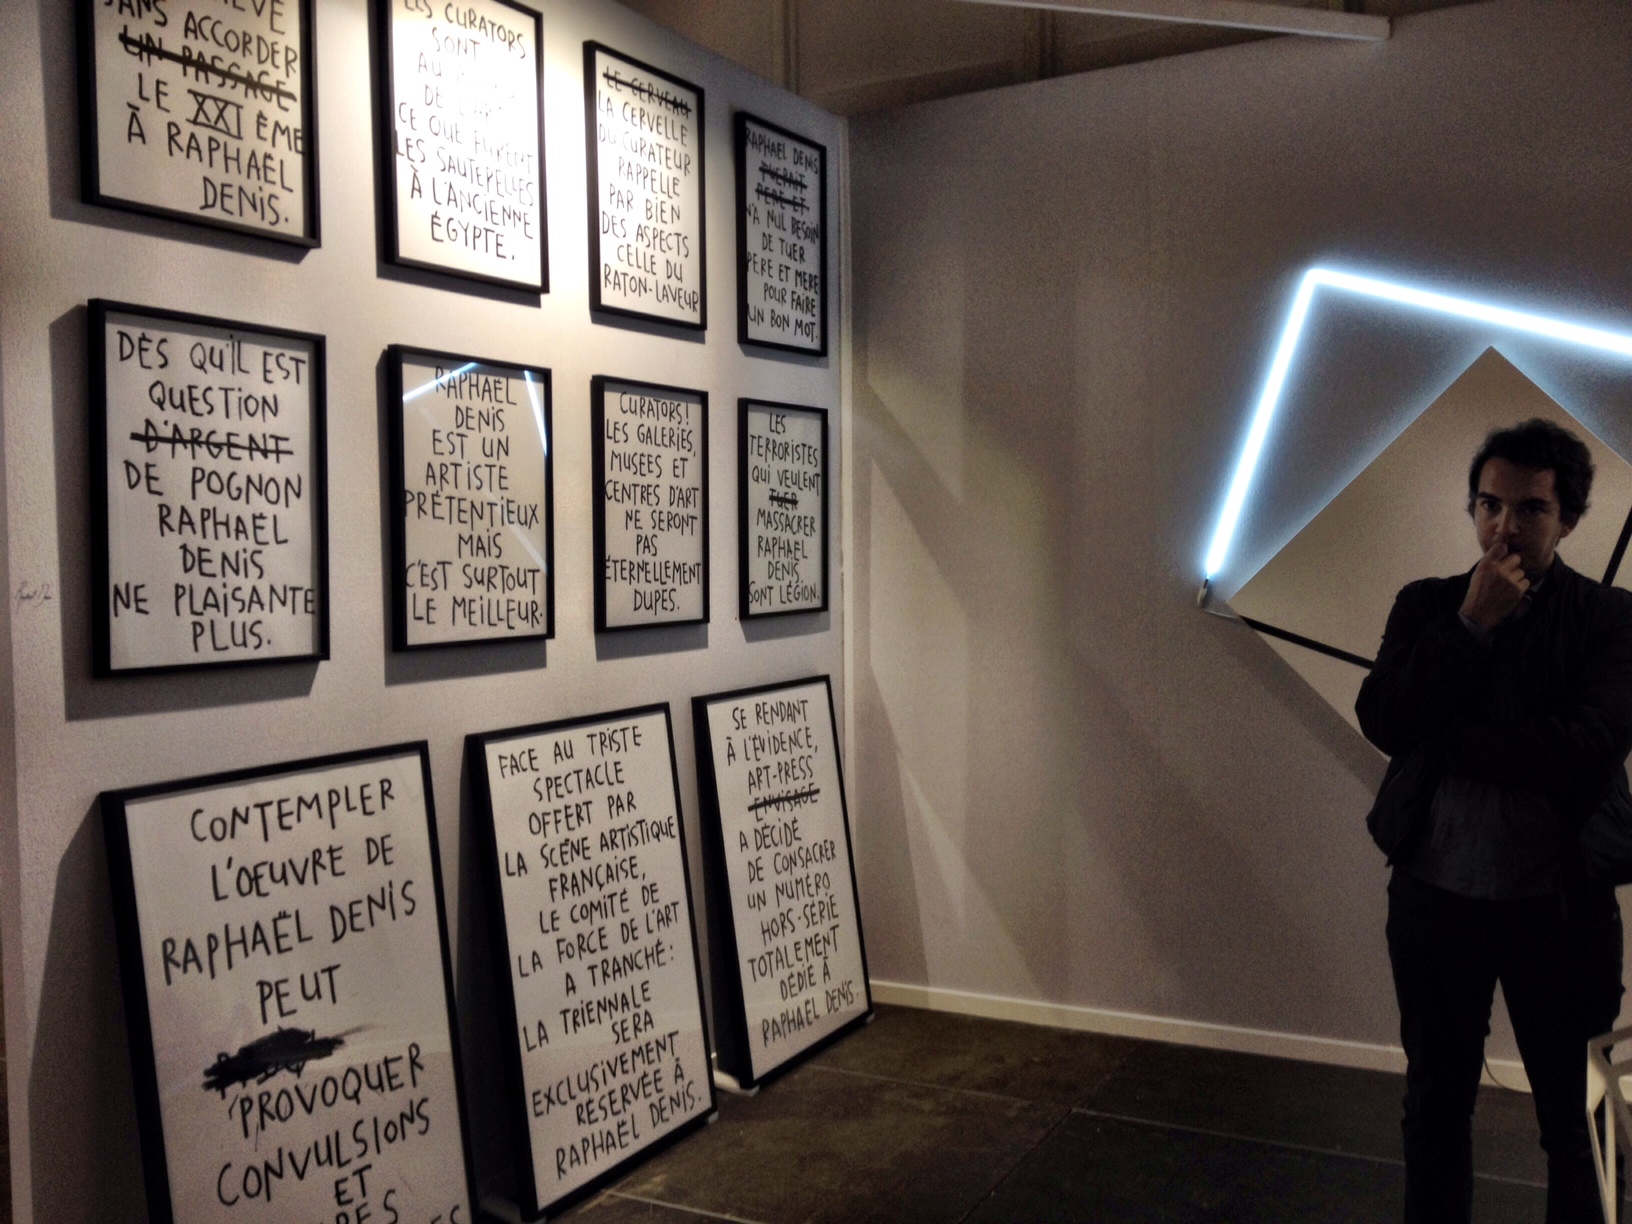 SANS ACCORDER
UN PASSAGE
LE XXI ÈME
À RAPHAËL
DENIS.
LES CURATORS
SONT
AU
DE
CE QUE FURENT
LES SAUTERELLES
À L'ANCIENNE
ÉGYPTE.
LE CERVEAU
LA CERVELLE
DU CURATEUR
RAPPELLE
PAR BIEN
DES ASPECTS
CELLE DU
RATON-LAVEUR
RAPHAËL DENIS
PÈRE ET
N'A NUL BESOIN
DE TUER
PÈRE ET MÈRE
POUR FAIRE
UN BON MOT.
DÈS QU'IL EST
QUESTION
D'ARGENT
DE POGNON
RAPHAËL
DENIS
NE PLAISANTE
PLUS.
RAPHAËL
DENIS
EST UN
ARTISTE
PRÉTENTIEUX
MAIS
C'EST SURTOUT
LE MEILLEUR.
CURATORS!
LES GALERIES,
MUSÉES ET
CENTRES D'ART
NE SERONT
PAS
ÉTERNELLEMENT
DUPES.
LES
TERRORISTES
QUI VEULENT
TUER
MASSACRER
RAPHAËL
DENIS
SONT LÉGION.
CONTEMPLER
L'OEUVRE DE
RAPHAËL DENIS
PEUT
PROVOQUER
CONVULSIONS
ET
FACE AU TRISTE
SPECTACLE
OFFERT PAR
LA SCÈNE ARTISTIQUE
FRANÇAISE,
LE COMITÉ DE
LA FORCE DE L'ART
A TRANCHÉ:
LA TRIENNALE
SERA
EXCLUSIVEMENT
RÉSERVÉE À
RAPHAËL DENIS.
SE RENDANT
À L'ÉVIDENCE,
ART-PRESS
ENVISAGE
A DÉCIDÉ
DE CONSACRER
UN NUMÉRO
HORS-SÉRIE
TOTALEMENT
DÉDIÉ À
RAPHAËL DENIS.